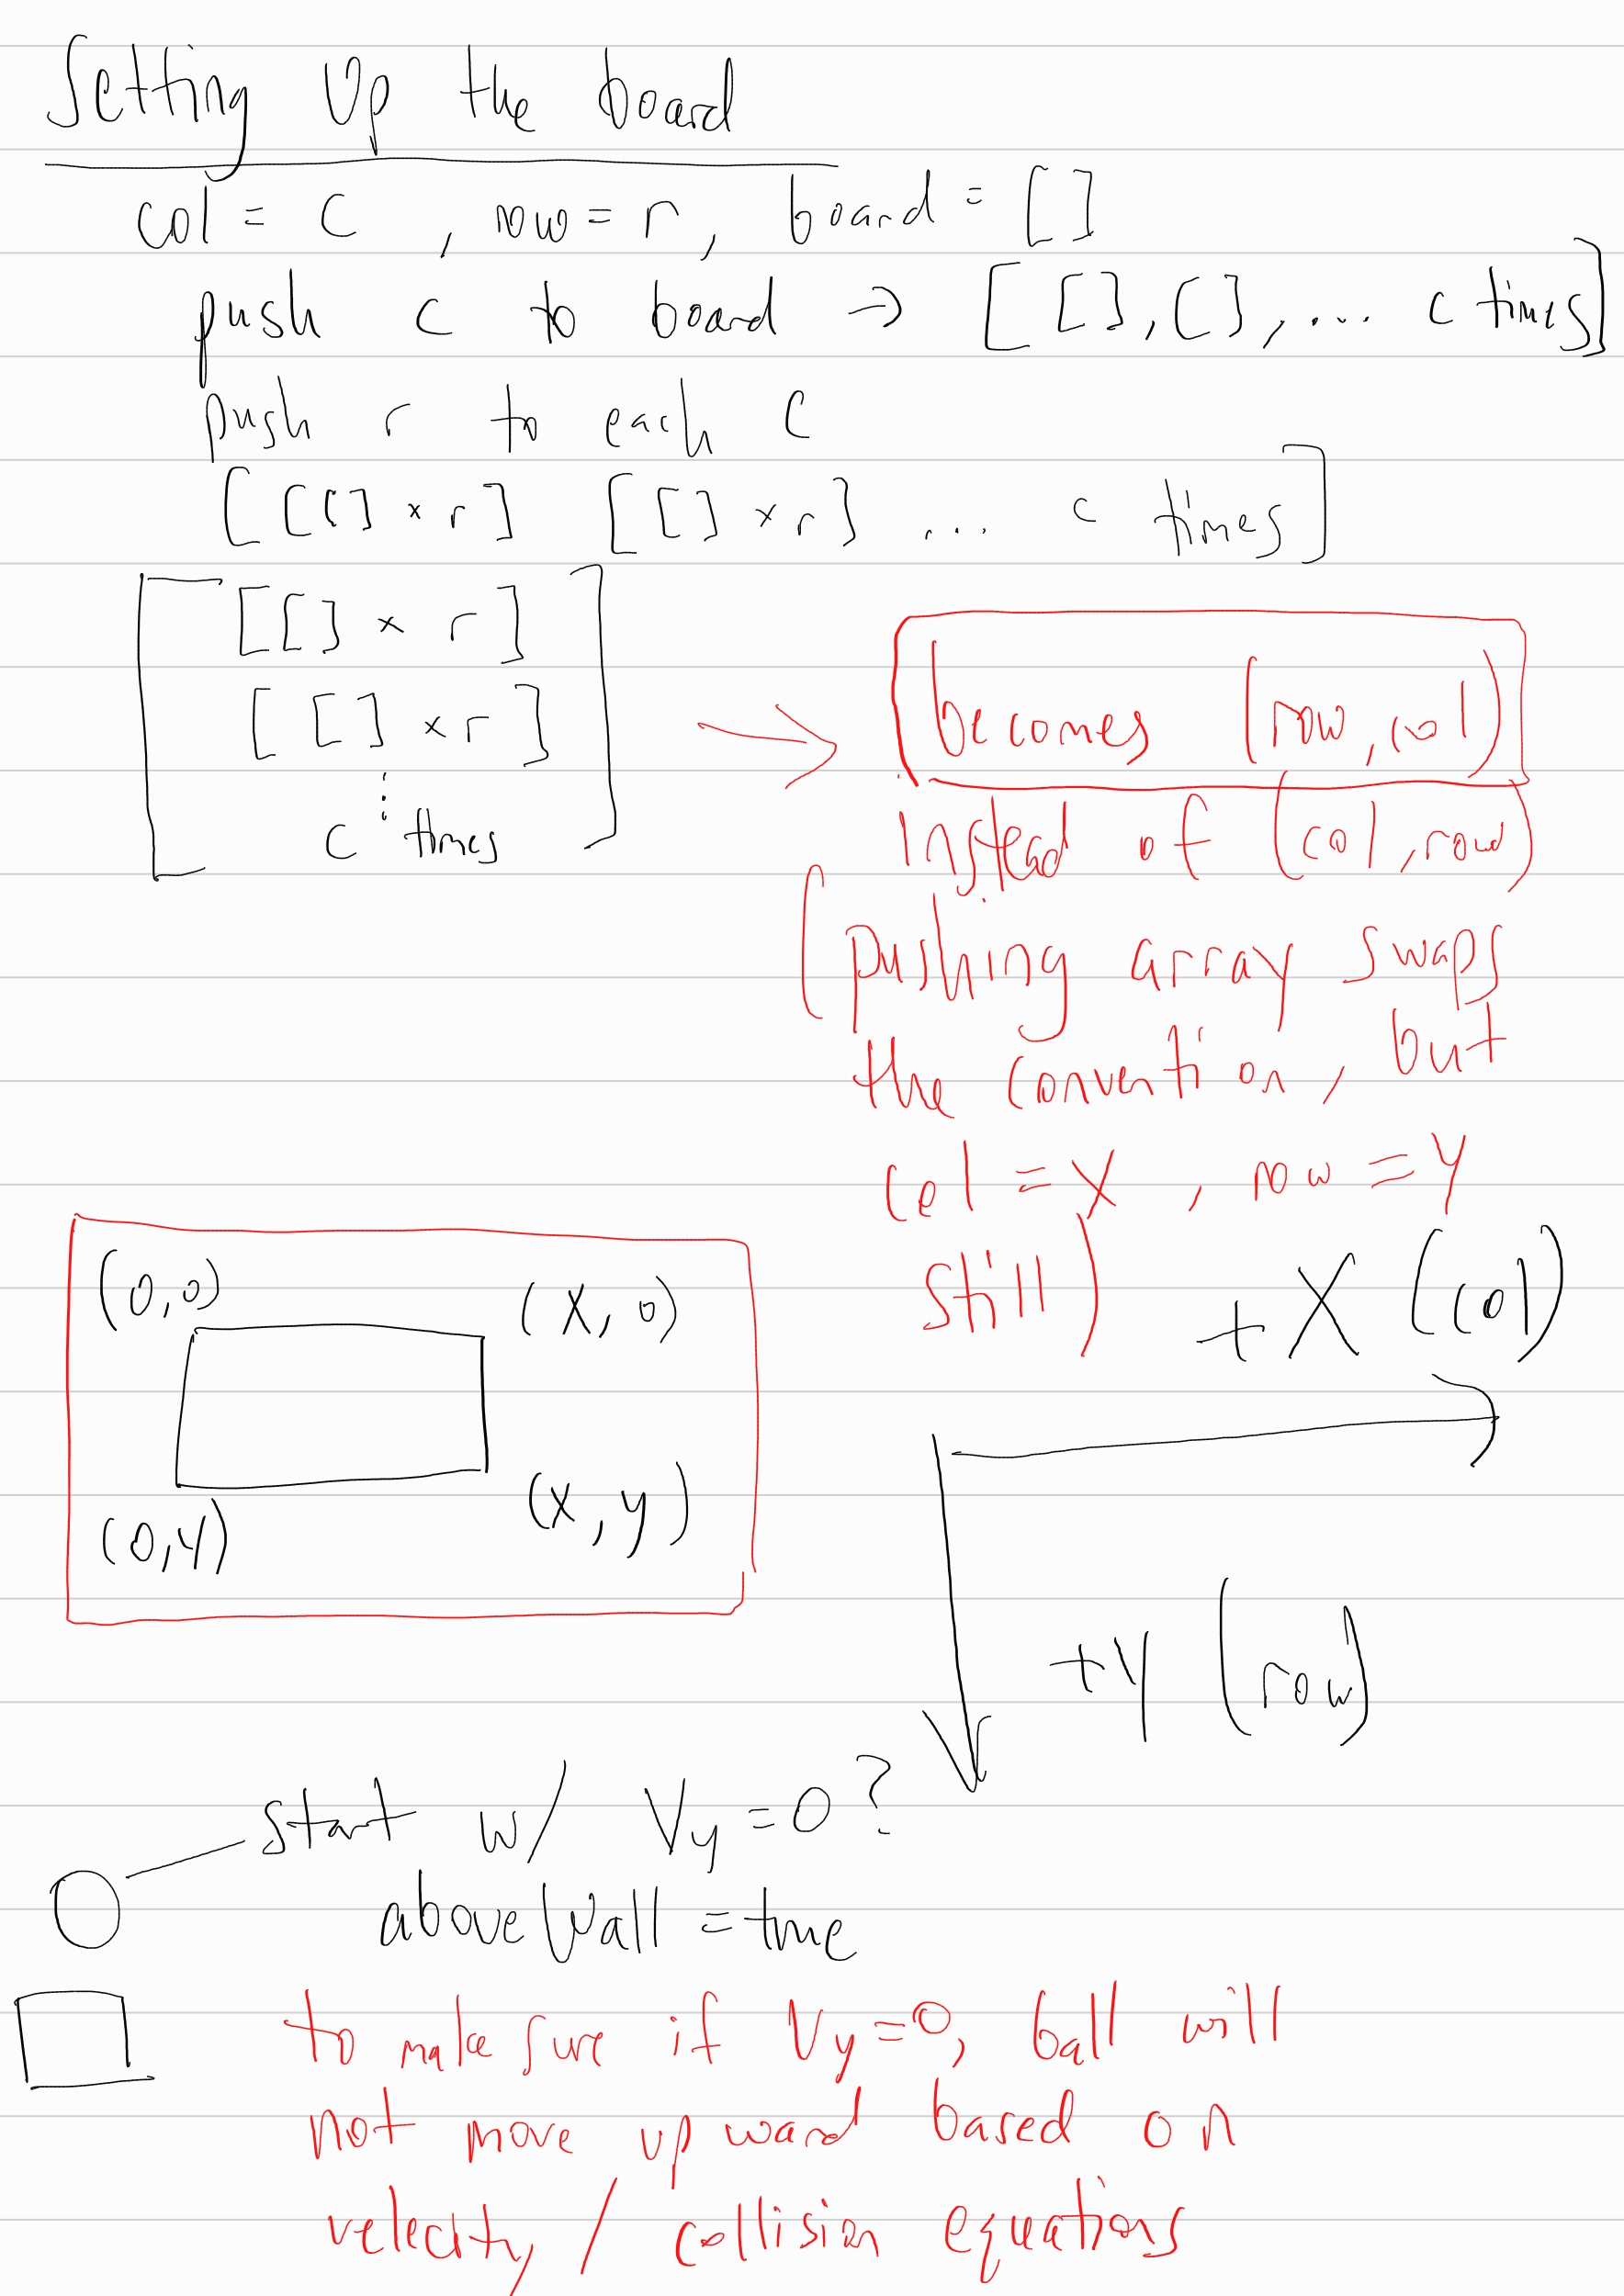 Setting Up the board
col = c , row = r, board = []
push c to board → [ [], [], .... c times]
push r to each c
[ [[] × r] [[] × r] ... c times]
[[] × r]
[ [] × r ]
⋮
c times
becomes (row, col)
instead of (col, row)
(pushing array swaps
the convention, but
col = X , row = Y
still)
(0,0) (X, 0)
(0,Y) (X, Y)
+ X (col)
+Y (row)
start w/ Vy = 0?
aboveWall = true
to make sure if Vy = 0, ball will
not move upward based on
velocity / collision equations